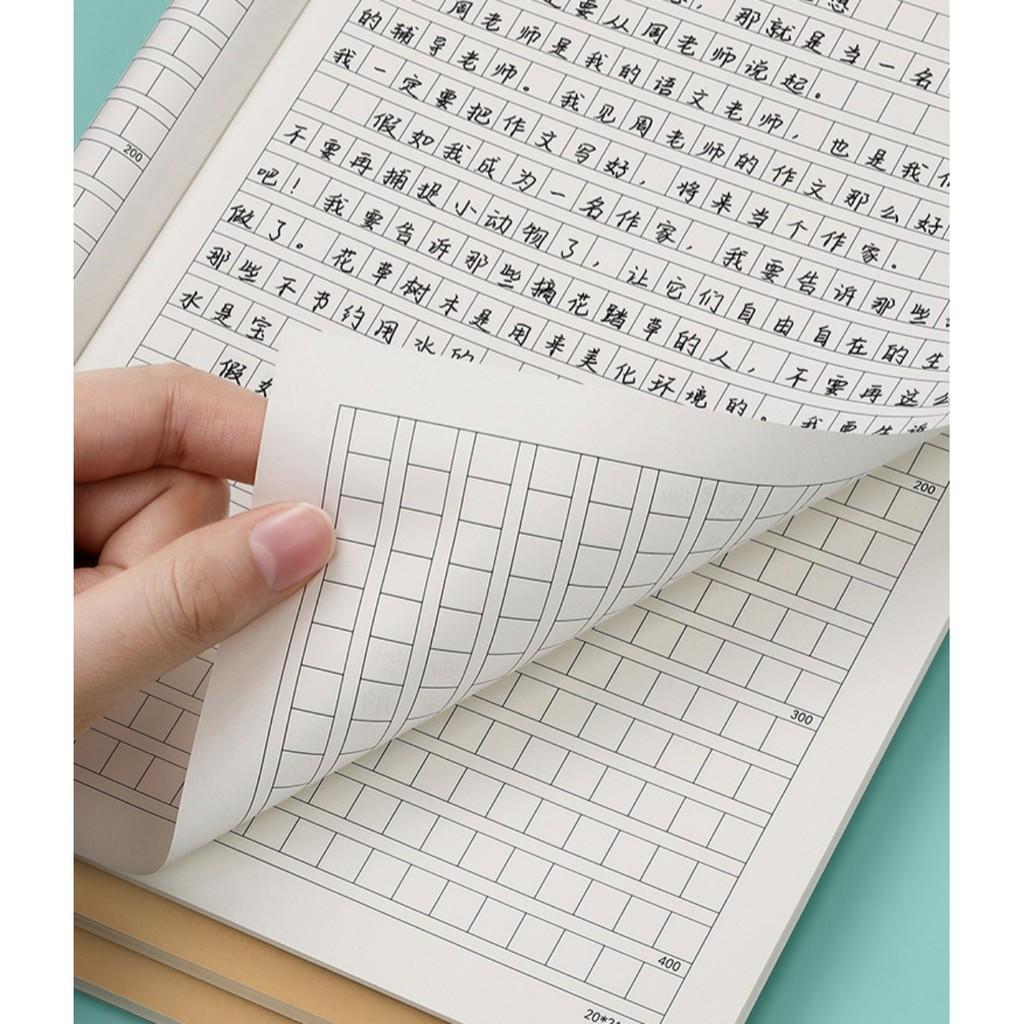 想
那就是当一名
要从周老师说起。
周老师是我的语文老师，也是我们
的辅导老师。我见周老师的作文那么好
我一定要把作文写好，将来当个作家。
假如我成为一名作家，我要告诉那些
不要再捕捉小动物了，让它们自由自在的生
吧！我要告诉那些摘花踏草的人，不要再这么
做了。花草树木是用来美化环境的。我要告诉
那些不节约用水的
水是宝
假如
200
200
300
400